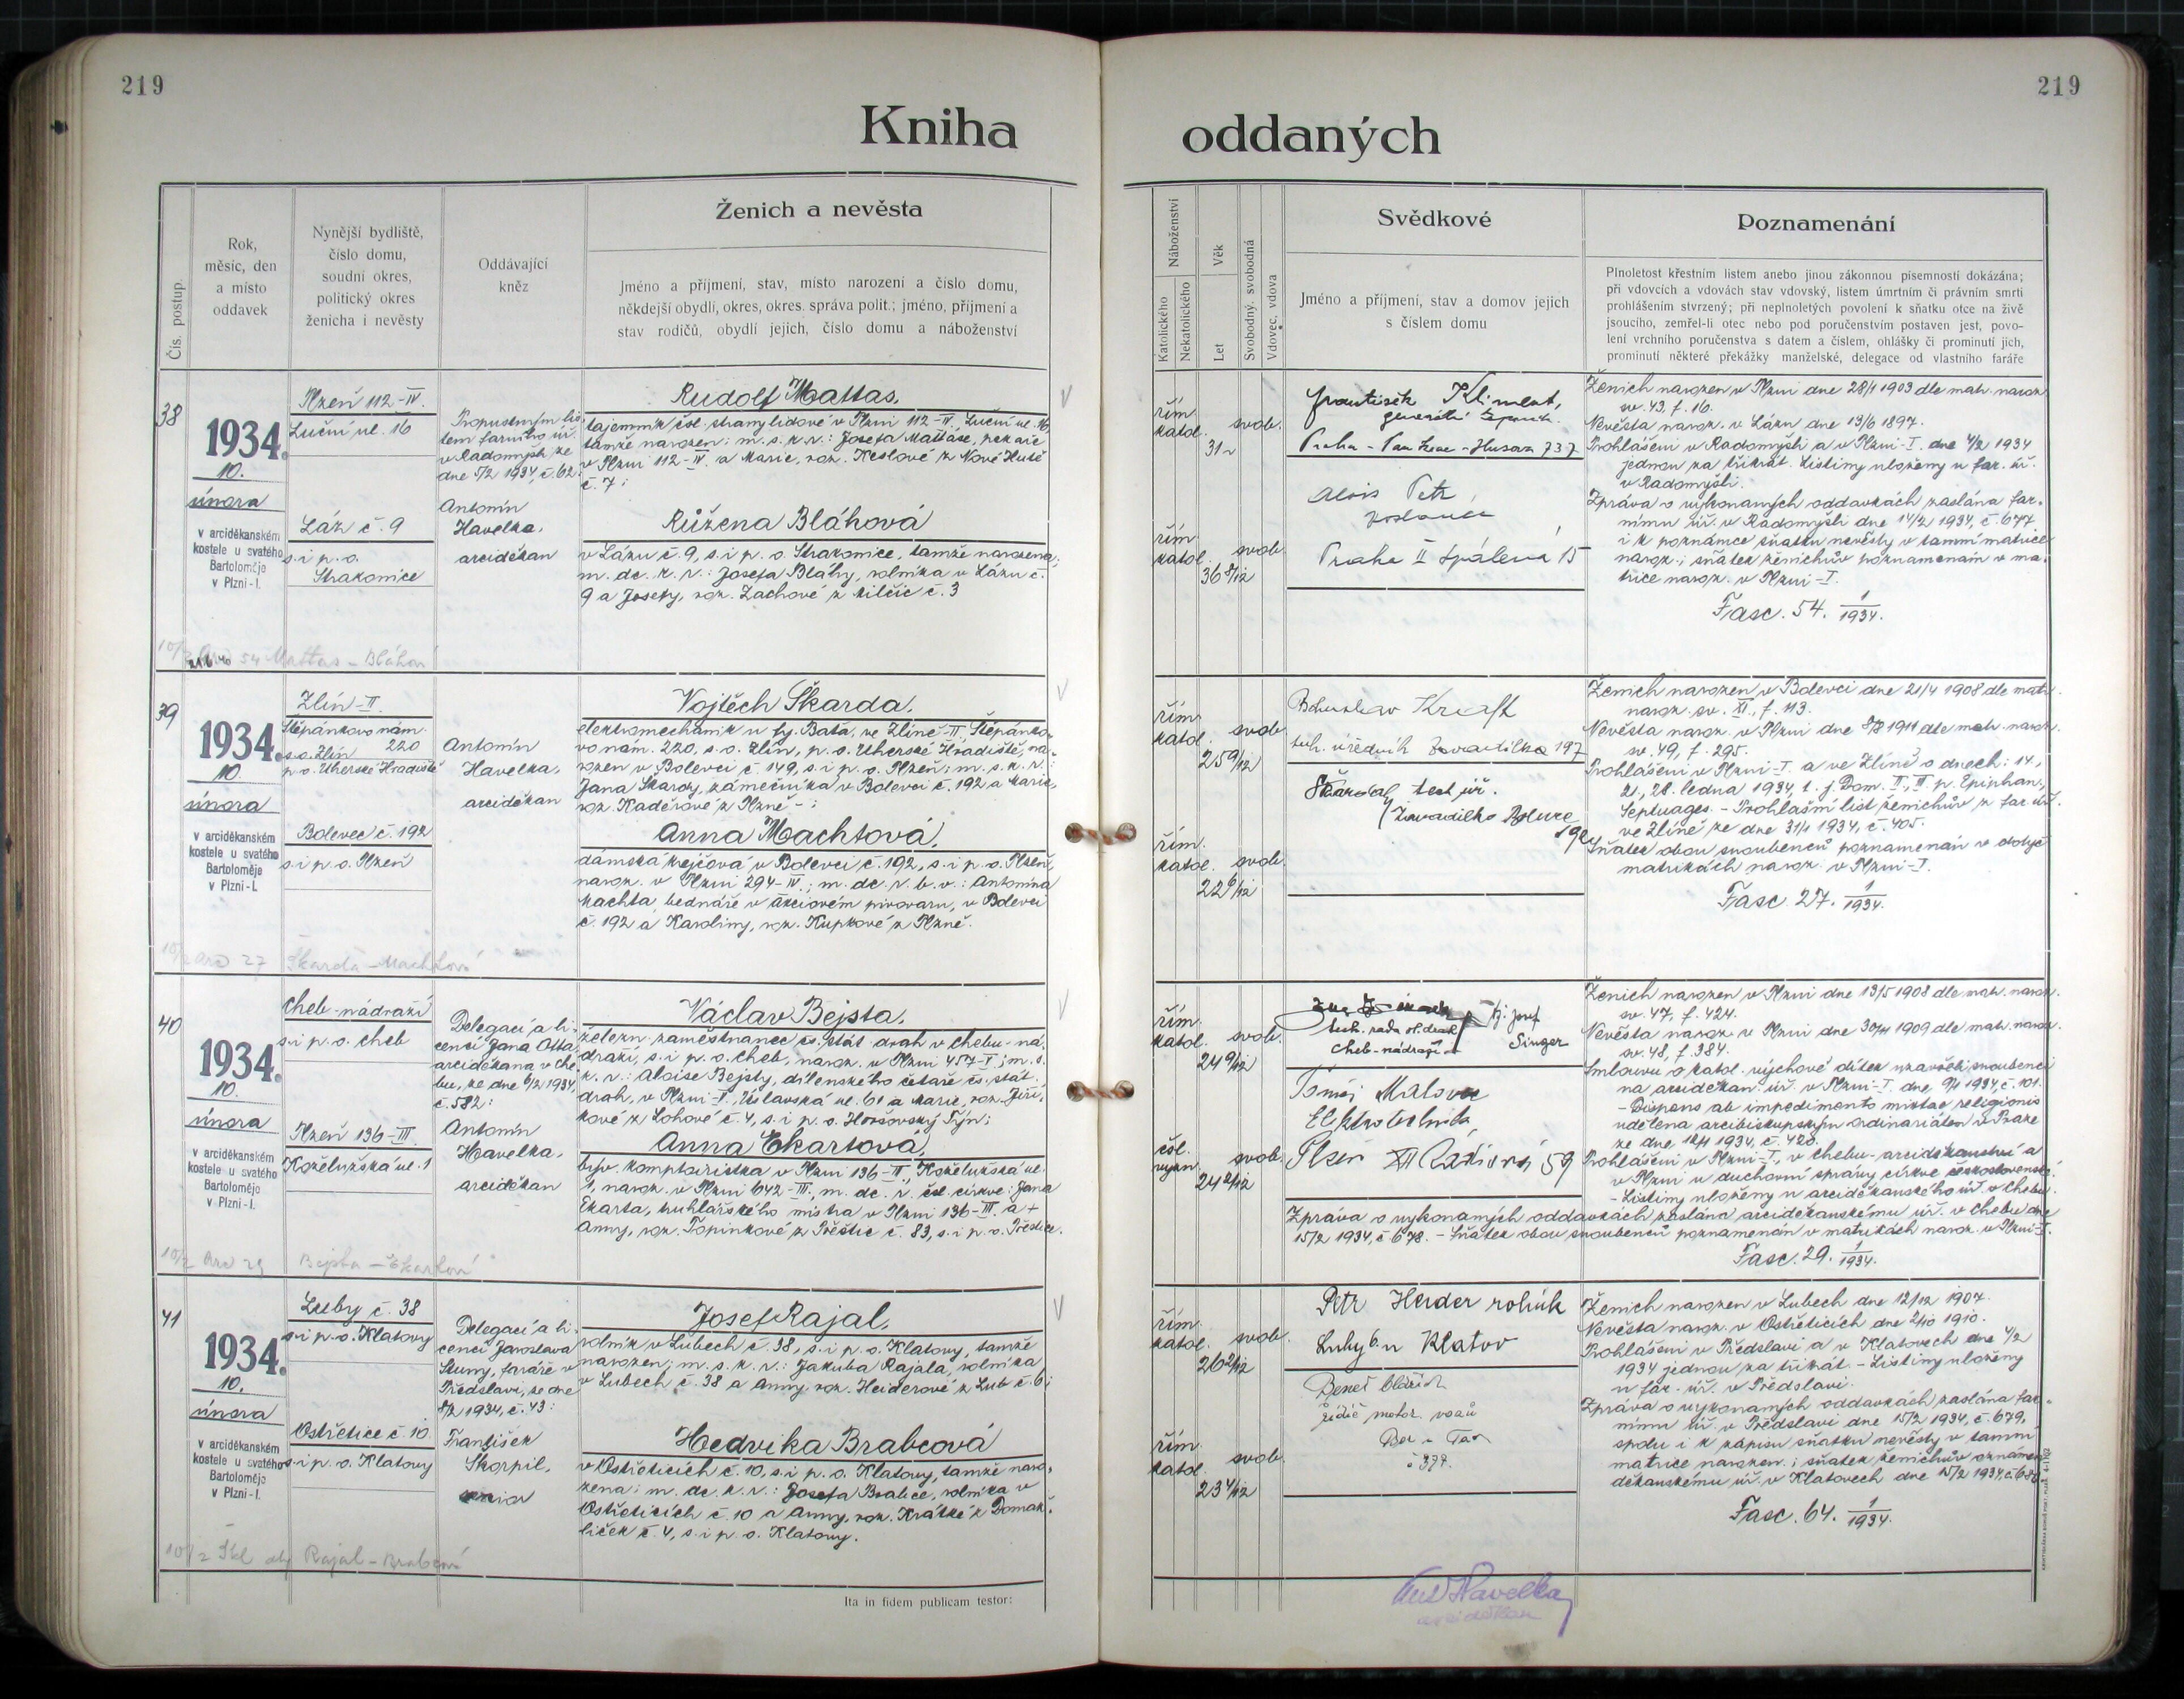 219
219
Kniha
oddaných
Čís. postup.
Rok,
měsíc, den
a místo
oddavek
Nynější bydliště,
číslo domu,
soudní okres,
politický okres
ženicha i nevěsty
Oddávající
kněz
Ženich a nevěsta
Jméno a příjmení, stav, místo narození a číslo domu,
někdejší obydlí, okres, okres. správa polit.; jméno, příjmení a
stav rodičů, obydlí jejich, číslo domu a náboženství
Náboženství
Katolického
Nekatolického
Věk
Let
Svobodný, svobodná
Vdovec, vdova
Svědkové
Jméno a příjmení, stav a domov jejich
s číslem domu
Poznamenání
Plnoletost křestním listem anebo jinou zákonnou písemností dokázána;
při vdovcích a vdovách stav vdovský, listem úmrtním či právním smrti
prohlášením stvrzený; při neplnoletých povolení k sňatku otce na živě
jsoucího, zemřel-li otec nebo pod poručenstvím postaven jest, povo-
lení vrchního poručenstva s datem a číslem, ohlášky či prominutí jich,
prominutí některé překážky manželské, delegace od vlastního faráře
38
1934.
10.
února
v arciděkanském
kostele u svatého
Bartoloměje
v Plzni-I.
Plzeň 112-IV.
Luční ul. 16
Láz č. 9
s. i p. o.
Strakonice
Propustným lis-
tem farního úř.
v Radomyšli ze
dne 5/2 1934, č. 62:
Antonín
Havelka,
arciděkan
Rudolf Mattas,
tajemník čsl. strany lidové v Plzni 112-IV., Luční ul. 16,
tamže narozen; m. s. k. r.: Josefa Mattase, pekaře
v Plzni 112-IV. a Marie, roz. Keslové z Nové Hutě
č. 7;
Růžena Bláhová
v Lázu č. 9, s. i p. o. Strakonice, tamže narozena;
m. dc. k. r.: Josefa Bláhy, rolníka v Lázu č.
9 a Josefy, roz. Zachové z
č. 3
54 Mattas - Bláhová
řím.
katol.
svob.
31
řím.
katol.
svob.
36 8/12
František Kliment,
generální
Praha - Husova 737
Alois Petr,
poslanec
Praha II Spálená 15
Ženich narozen v Plzni dne 28/1 1903 dle matr. naroz.
sv. 43, f. 16.
Nevěsta naroz. v Lázu dne 13/6 1897.
Prohlášeni v Radomyšli a v Plzni-I. dne 4/2 1934
jednou za třikrát. Listiny uloženy u far. úř.
v Radomyšli.
Zpráva o vykonaných oddavkách zaslána far-
nímu úř. v Radomyšli dne 14/2 1934, č. 677,
i k poznámce sňatku nevěsty v tamní matrice
naroz.; sňatek ženichův poznamenán v ma-
trice naroz. v Plzni-I.
Fasc. 54. 1/1934.
39
1934.
10.
února
v arciděkanském
kostele u svatého
Bartoloměje
v Plzni-I.
Zlín-II.
Štěpánkovo nám.
220
s. o. Zlín
p. o. Uherské Hradiště
Bolevec č. 192
s. i p. o. Plzeň
Antonín
Havelka,
arciděkan
Vojtěch Škarda,
elektromechanik u fy. Baťa, ve Zlíně-II, Štěpánko-
vo nám. 220, s. o. Zlín, p. o. Uherské Hradiště, na-
rozen v Bolevci č. 149, s. i p. o. Plzeň; m. s. k. r.:
Jana Škardy, zámečníka v Bolevci č. 192 a Marie,
roz. Kadeřové z Plzně -;
Anna Machtová,
dámská krejčová v Bolevci č. 192, s. i p. o. Plzeň,
naroz. v Plzni 294-IV.; m. dc. r. b. v.: Antonína
Machta, bednáře v akciovém pivovaru, v Bolevci
č. 192 a Karoliny, roz. Kupkové z Plzně.
27 Škarda - Machtová
řím.
katol.
svob.
25 9/12
řím.
katol.
svob.
22 6/12
Bohuslav Kraft
úředník 197
Ženich narozen v Bolevci dne 21/4 1908 dle matr.
naroz. sv. XI., f. 113.
Nevěsta naroz. v Plzni dne 1911 dle matr. naroz.
sv. 49, f. 295.
Prohlášeni v Plzni-I. a ve Zlíně o dnech: 14.,
21., 28. ledna 1934, t. j. Dom. II., III. p. Epiphan.,
Septuages. - Prohlašní list ženichův z far. úř.
ve Zlíně ze dne 31/1 1934, č. 405.
Sňatek obou snoubenců poznamenán v dotyč.
matrikách naroz. v Plzni-I.
Fasc. 27. 1/1934.
40
1934.
10.
února
v arciděkanském
kostele u svatého
Bartoloměje
v Plzni-I.
Cheb-nádraží
s. i p. o. Cheb
Plzeň 136-III
Koželužská ul. 1
Delegací a li-
cencí Jana Otta,
arciděkana v Che-
bu, ze dne 6/2 1934,
č. 582:
Antonín
Havelka,
arciděkan
Václav Bejsta,
železn. zaměstnanec čs. stát. drah v Chebu-ná-
draží, s. i p. o. Cheb, naroz. v Plzni 457-I; m. s.
k. r.: Aloise Bejsty, dílenského četaře čs. stát.
drah, v Plzni-I., Úslavská ul. 61 a Marie, roz. Jiří-
kové z Lohové č. 4, s. i p. o. Horšovský Týn;
Anna Ekartová,
býv. komptoiristka v Plzni 136-III, Koželužská ul.
1, naroz. v Plzni 642-III., m. dc. r. čsl. církve: Jana
Ekarta, truhlářského mistra v Plzni 136-III. a +
Anny, roz. Topinkové z Přeštic č. 83, s. i p. o. Přeštice.
29 Bejsta - Ekartová
řím.
katol.
svob.
24 9/12
čsl.
vyzn.
svob.
24 2/12
tech. rada st. drah
Cheb-nádraží
Josef
Singer
Elektrotechnik,
Plzeň XII 59
Ženich narozen v Plzni dne 13/5 1908 dle matr. naroz.
sv. 47, f. 424.
Nevěsta naroz. v Plzni dne 30/11 1909 dle matr. naroz.
sv. 48, f. 384.
Smlouvu o katol. výchově dítek uzavřeli snoubenci
na arciděkan. úř. v Plzni-I. dne 9/1 1934, č. 101.
- Dispens ab impedimento mixtae religionis
udělena arcibiskupským ordinariátem v Praze
ze dne 12/1 1934, č. 420.
Prohlášeni v Plzni-I., v Chebu-arciděkanství a
v Plzni u duchovní správy církve československé.
- Listiny uloženy u arciděkanského úř. v Chebu.
Zpráva o vykonaných oddavkách zaslána arciděkanskému úř. v Chebu dne
15/2 1934, č. 678. - Sňatek obou snoubenců poznamenán v matrikách naroz. v Plzni-I.
Fasc. 29. 1/1934.
41
1934.
10.
února
v arciděkanském
kostele u svatého
Bartoloměje
v Plzni-I.
Luby č. 38
s. i p. o. Klatovy
Ostřetice č. 10
s. i p. o. Klatovy
Delegací a li-
cencí Jaroslava
faráře v
Předslavi, ze dne
8/2 1934, č. 43:
František
Škorpil,
Josef Rajal,
rolník v Lubech č. 38, s. i p. o. Klatovy, tamže
narozen; m. s. k. r.: Jakuba Rajala, rolníka
v Lubech č. 38 a Anny, roz. Heiderové z Lub č. 6;
Hedvika Brabcová
v Ostřeticích č. 10, s. i p. o. Klatovy, tamže naro-
zena; m. dc. k. r.: Josefa Brabce, rolníka v
Ostřeticích č. 10 a Anny, roz. Krátké z Domaž-
liček č. 4, s. i p. o. Klatovy.
Rajal - Brabcová
řím.
katol.
svob.
26 2/12
řím.
katol.
svob.
23 4/12
Petr Heider rolník
Luby 6. u Klatov
Beneš Oldřich
řidič motor. vozů
Ženich narozen v Lubech dne 12/12 1907.
Nevěsta naroz. v Ostřeticích dne 2/10 1910.
Prohlášeni v Předslavi a v Klatovech dne 4/2
1934 jednou za třikrát. - Listiny uloženy
u far. úř. v Předslavi.
Zpráva o vykonaných oddavkách zaslána far-
nímu úř. v Předslavi dne 15/2 1934, č. 679,
spolu i k zápisu sňatku nevěsty v tamní
matrice narozen.; sňatek ženichův oznámen
děkanskému úř. v Klatovech dne 15/2 1934, č. 680.
Fasc. 64. 1/1934.
Ita in fidem publicam testor:
Ant. Havelka
arciděkan